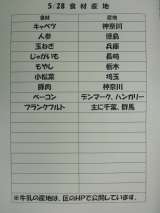 5/28 食材産地
食材 産地
キャベツ 神奈川
人参 徳島
玉ねぎ 兵庫
じゃがいも 長崎
もやし 栃木
小松菜 埼玉
豚肉 神奈川
ベーコン デンマーク、ハンガリー
フランクフルト 主に千葉、群馬
※牛乳の産地は、区のHPで公開しています。